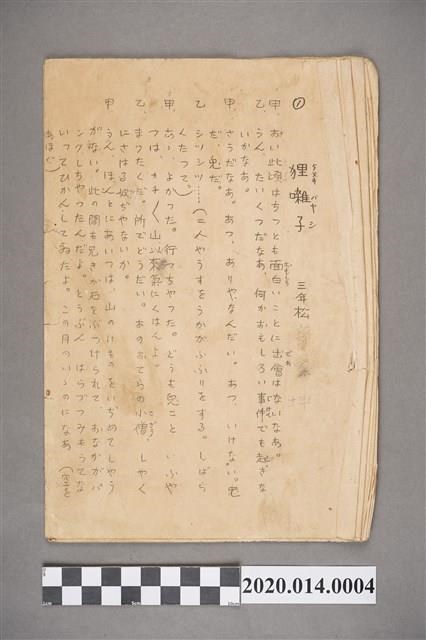 ①
狸囃子
タヌキ バヤシ
三年松
甲、おい此頃はちつとも面白いことに出會はないなあ。
乙、うん、たいくつだなあ、何かおもしろい事件でも起きな
いかなあ。
甲、さうだなあ。あつ、ありやなんだい。あつ、いけない。兎
だ、兎だ。
乙 シツシツ……(二人やうすをうかがふふりをする。しばら
くたつて。)
甲、あゝ、よかつた。行つちやつた。どうも兎こと いふや
つは、カチ〱山以来氣にくはんよ。
乙、まつたくだ。所でどうだい。あのおてらの小僧、しやく
にさはる奴ぢやないか。
甲 うん、ほんとにあいつは、山のけものをいぢめてしやう
がない。此の間も兄きが石をぶつけられて、おなかがパ
ンクしちやつたんだよ。とうぶん はらづつみもうてな
いつてひかんしてゐたよ。この月のいゝのになあ (空を
あほぐ)
2020.014.0004
1cm
5cm
10cm